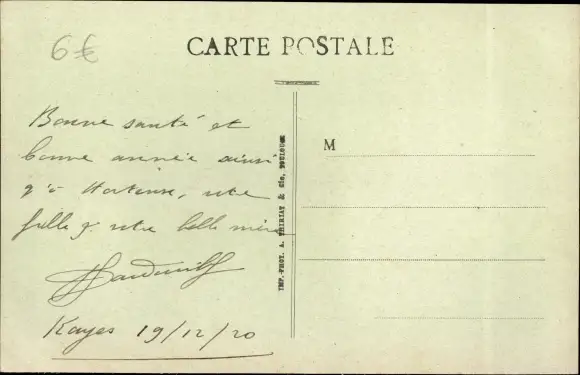 6€
CARTE POSTALE
Bonne santé et
bonne année ainsi
qu'à Hortense, votre
fille & votre belle mère
Kayes 19/12/20
IMP.-PHOT. A. THIRIAT & Cie, TOULOUSE
M